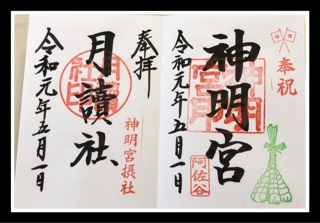 奉祝
神明宮
阿佐谷
令和元年五月一日
奉拝
月讀社
神明宮摂社
令和元年五月一日